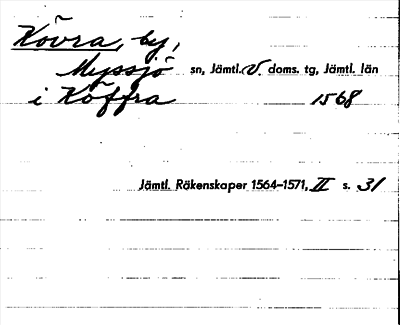 Kövra, by,
Myssjö sn, Jämtl. V. doms. tg, Jämtl. län
i Köffra 1568
Jämtl. Räkenskaper 1564–1571, II s. 31